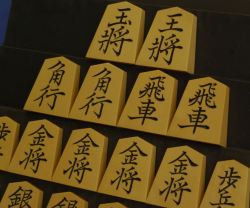 玉將 王將
角行 角行 飛車 飛車
歩 金将 金将 金将 金将 歩兵
銀 銀